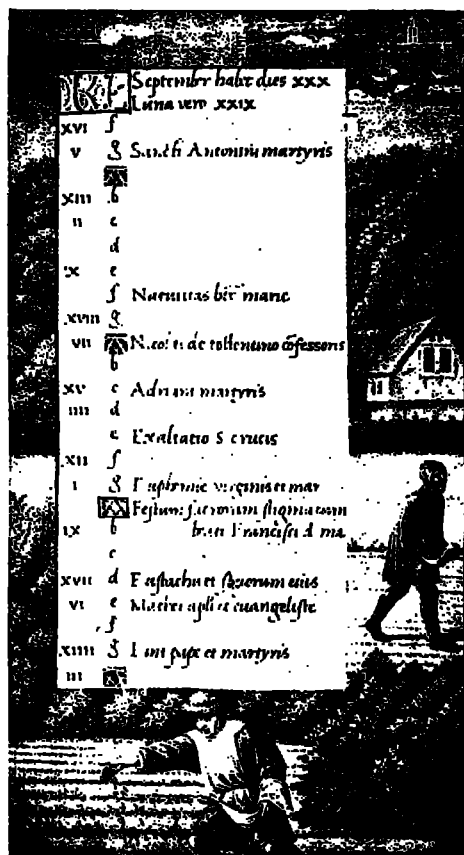 KL September habet dies xxx
Luna vero xxix
xvi f
v g Sancti Antonini martyris
A
xiii b
ii c
d
ix e
f Nativitas bte marie
xviii g
vii A Nicolai de tollentino cōfessoris
b
xv c Adriani martyris
iiii d
e Exaltatio S crucis
xii f
i g Euphemie virginis et mar
A Festum sacrorum stigmatum
ix b beati Francisci d ma
c
xvii d Eustachii et sociorum eius
vi e Mathei apli et euangeliste
f
xiiii g Lini pape et martyris
iii A